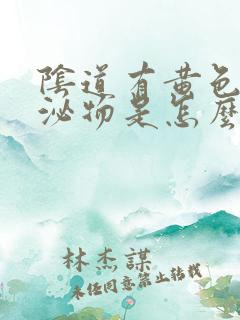 陰道有黄色
泌物是怎麽
林杰謀
未经同意禁止转载